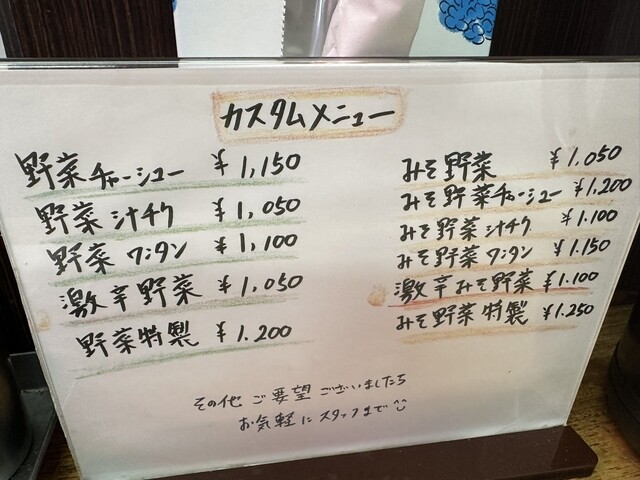 カスタムメニュー
野菜チャーシュー ¥1,150
野菜汁チク ¥1,050
野菜ワンタン ¥1,100
激辛野菜 ¥1,050
野菜特製 ¥1.200
みそ野菜 ¥1.050
みそ野菜チャーシュー ¥1,200
みそ野菜汁チク ¥1.100
みそ野菜ワンタン ¥1.150
激辛みそ野菜 ¥1.100
みそ野菜特製 ¥1.250
その他ご要望ございましたら
お気軽にスタッフまで